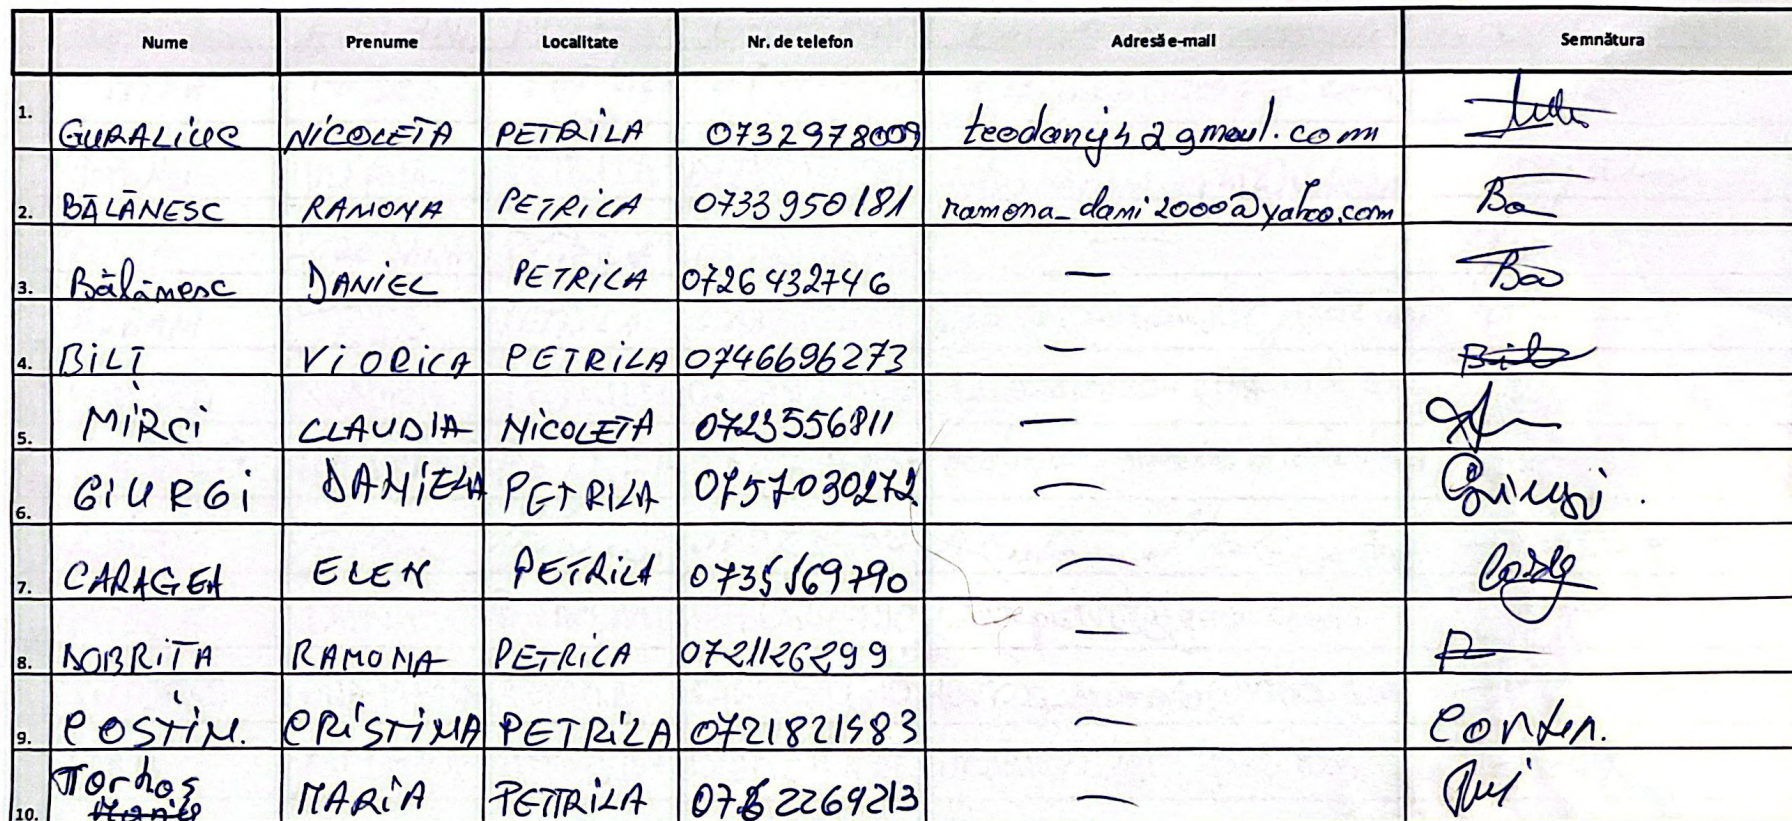 Nume Prenume Localitate Nr. de telefon Adresă e-mail Semnătura
1. GURALIUC NICOLETA PETRILA 0732978009
2. BĂLĂNESC RAMONA PETRILA 0733950181 ramona_dani2000@yahoo.com
3. Bălănesc DANIEL PETRILA 0726432746 —
4. BILT VIORICA PETRILA 0746696273 —
5. MIRCI CLAUDIA NICOLETA 0723556811 —
6. GIURGI DANIELA PETRILA 0757030272 — Giurgi.
7. CARAGEA ELEN PETRILA 0735569790 —
8. DOBRITA RAMONA PETRILA 0721126299 —
9. COSTIN. CRISTINA PETRILA 0721821583 —
10. MARIA PETRILA —